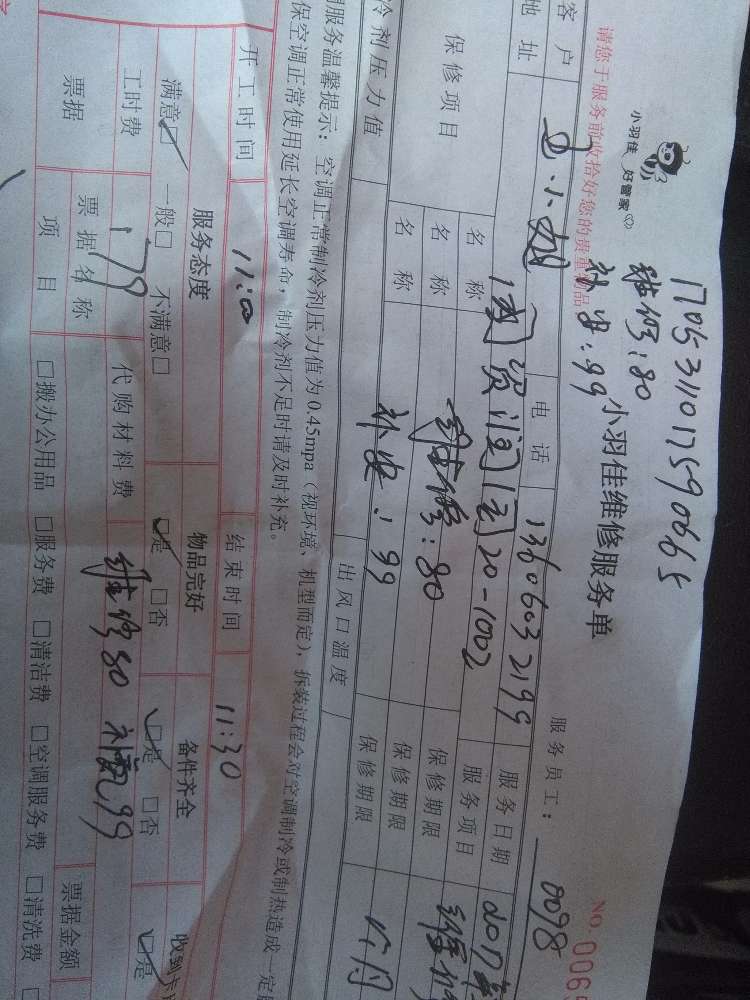 1705311017590665
维修:80
补发:99
小羽佳 好管家
小羽佳维修服务单
NO.006
请您于服务前收拾好您的贵重物品
服务员工: 0098
客户 小姐 电话 13606032199 服务日期 2017
地址 20-1002 服务项目 维修
保修项目 名称 维修:80 保修期限
名称 补 :99 保修期限 个月
名称 保修期限
冷剂压力值 出风口温度
服务温馨提示: 空调正常制冷剂压力值为0.45mpa(视环境、机型而定),拆装过程会对空调制冷或制热造成一定
保空调正常使用延长空调寿命,制冷剂不足时请及时补充。
开工时间 11:00 结束时间 11:30
服务态度 物品完好 备件齐全 收到
满意□ 一般□ 不满意□ □是 □否 □是 □否 □是
工时费 179 代购材料费 维修80 补 99
票据 票据名称 票据金额
项目 □搬办公用品 □服务费 □清洁费 □空调服务费 □清洗费